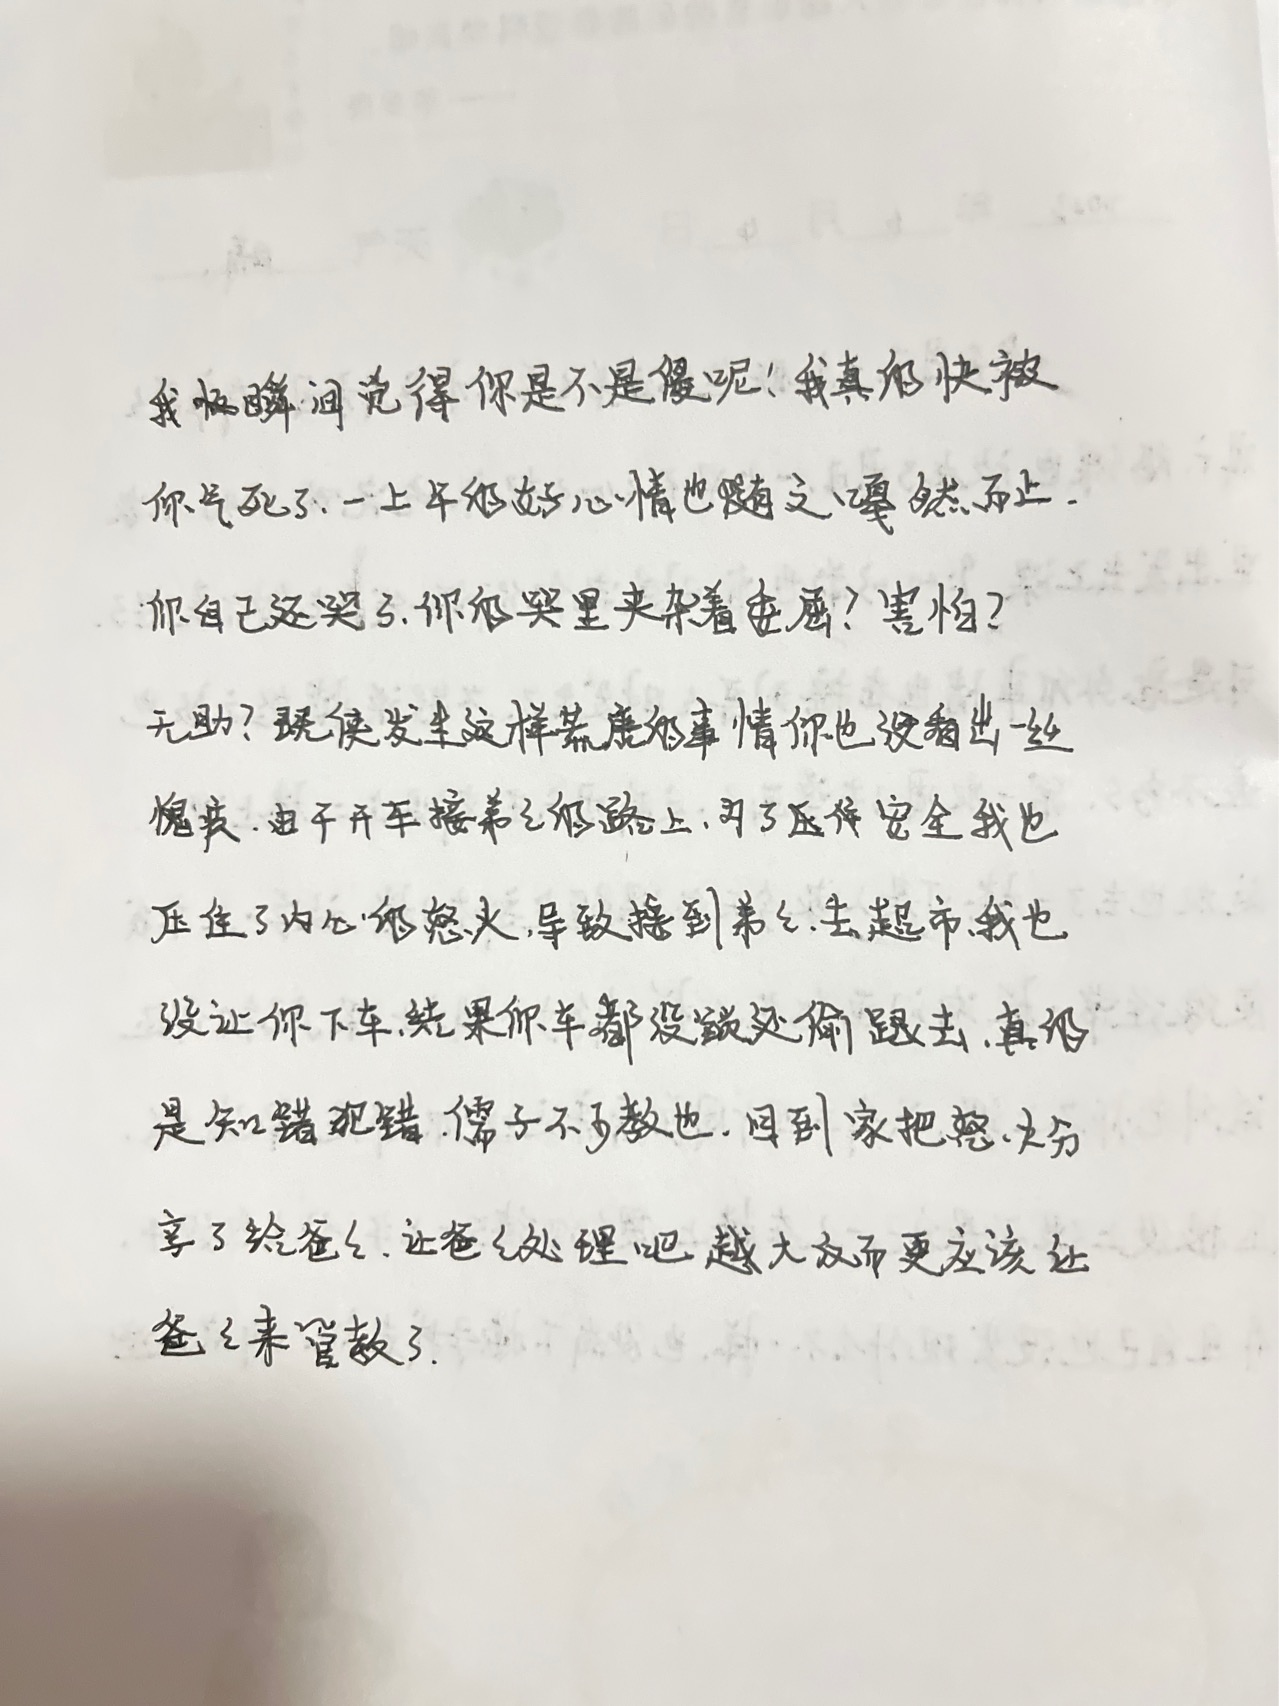 我瞬间觉得你是不是傻呢！我真的快被
你气死了.一上午的好心情也随之嘎然而止.
你自己还哭了.你的哭里夹杂着委屈？害怕？
无助？既使发生这样荒唐的事情你也没看出一丝
愧疚.由于开车接弟弟的路上,为了安全我也
压住了内心的怒火,导致接到弟弟.去超市,我也
没让你下车,结果你车都没锁还偷跟去,真的
是知错犯错.儒子不可教也.回到家把怒火分
享了给爸爸.让爸爸处理吧 越大反而更应该让
爸爸来管教了.